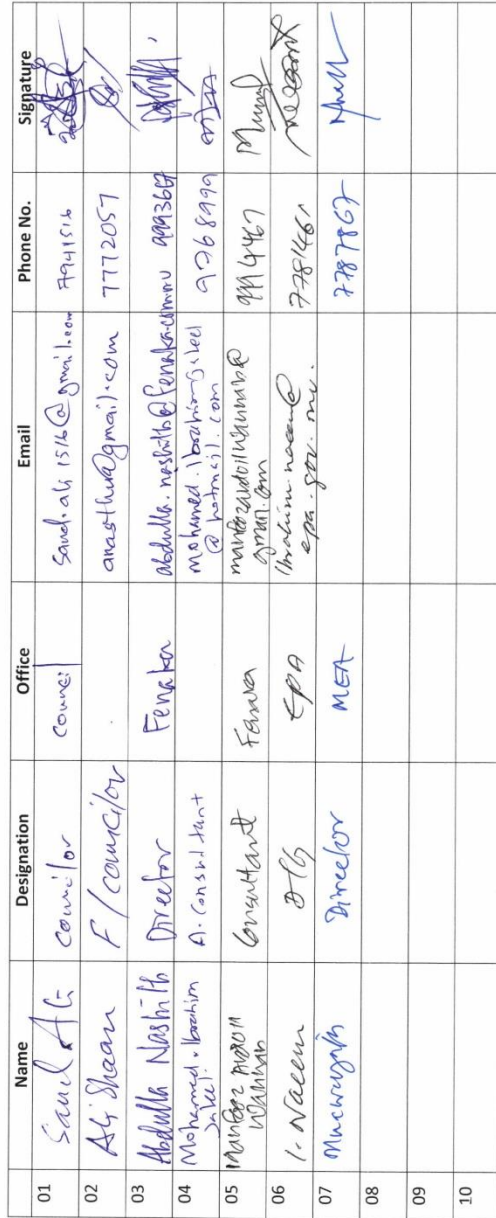 Name Designation Office Email Phone No. Signature
01 Saud Ali councilor council saud.ali1516@gmail.com 7941516
02 Ali Shaan F/councilor anasthu@gmail.com 7772057
03 Abdulla Nashith Director Fenaka abdulla.nashith@fenaka.com 9993667
04 Mohamed Ibrahim Jaleel A. Consultant mohamed.ibrahimjaleel
@hotmail.com 9768999
05 Consultant Fenaka
gmail.com 9914467
06 I. Naeem EPA ibrahim.naeem@
epa.gov.mv. 7781461
07 Director MEA 7787867
08
09
10